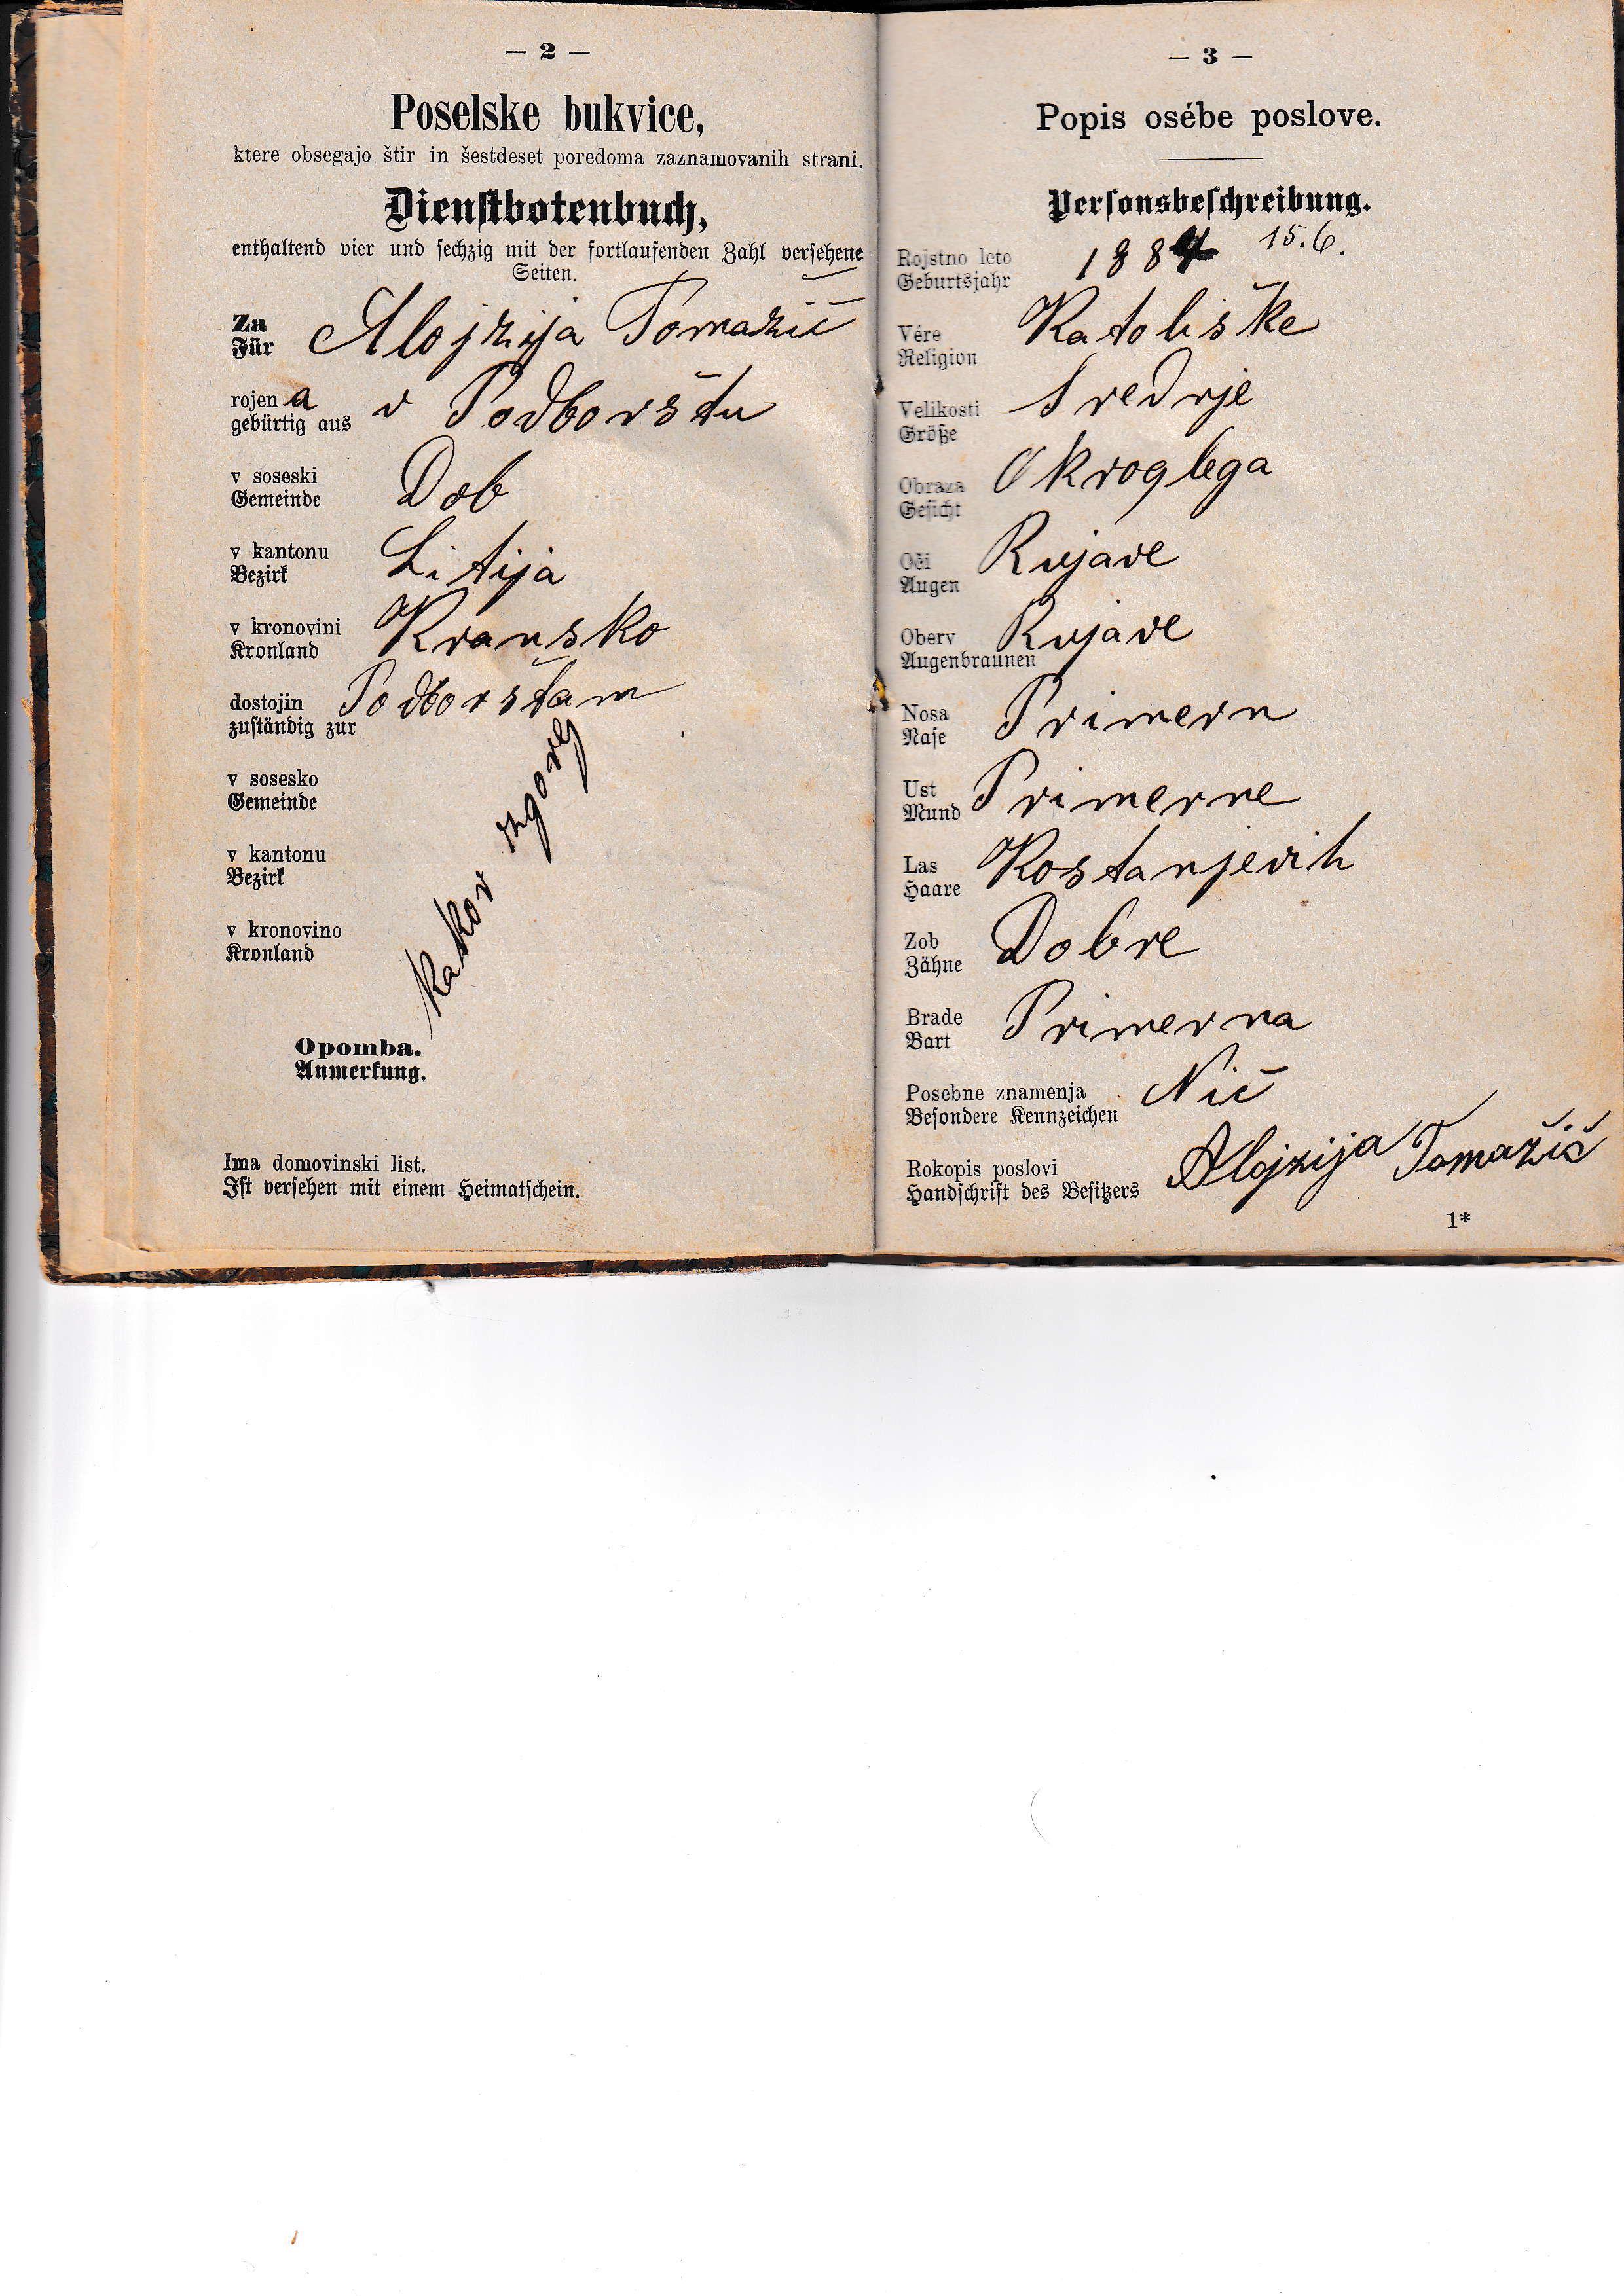 — 2 —
Poselske bukvice,
ktere obsegajo štir in šestdeset poredoma zaznamovanih strani.
Dienstbotenbuch,
enthaltend vier und sechzig mit der fortlaufenden Zahl versehene
Seiten.
Za
Für Alojzija Tomažič
rojen a v Podborštu
gebürtig aus
v soseski
Gemeinde Dob
v kantonu
Bezirk Litija
v kronovini
Kronland Kransko
dostojin Podborštam
zuständig zur
v sosesko
Gemeinde
v kantonu
Bezirk
v kronovino
Kronland
kakor zgorej
Opomba.
Anmerkung.
Ima domovinski list.
Ist versehen mit einem Heimatschein.
— 3 —
Popis osébe poslove.
Personsbeschreibung.
Rojstno leto 1884 15.6.
Geburtsjahr
Vére Katoliške
Religion
Velikosti Srednje
Größe
Obraza Okroglega
Gesicht
Oči Rujave
Augen
Oberv Rujave
Augenbraunen
Nosa Primern
Nase
Ust Primerne
Mund
Las Kostanjevih
Haare
Zob Dobre
Zähne
Brade Primerna
Bart
Posebne znamenja Nič
Besondere Kennzeichen
Rokopis poslovi Alojzija Tomažič
Handschrift des Besitzers
1*